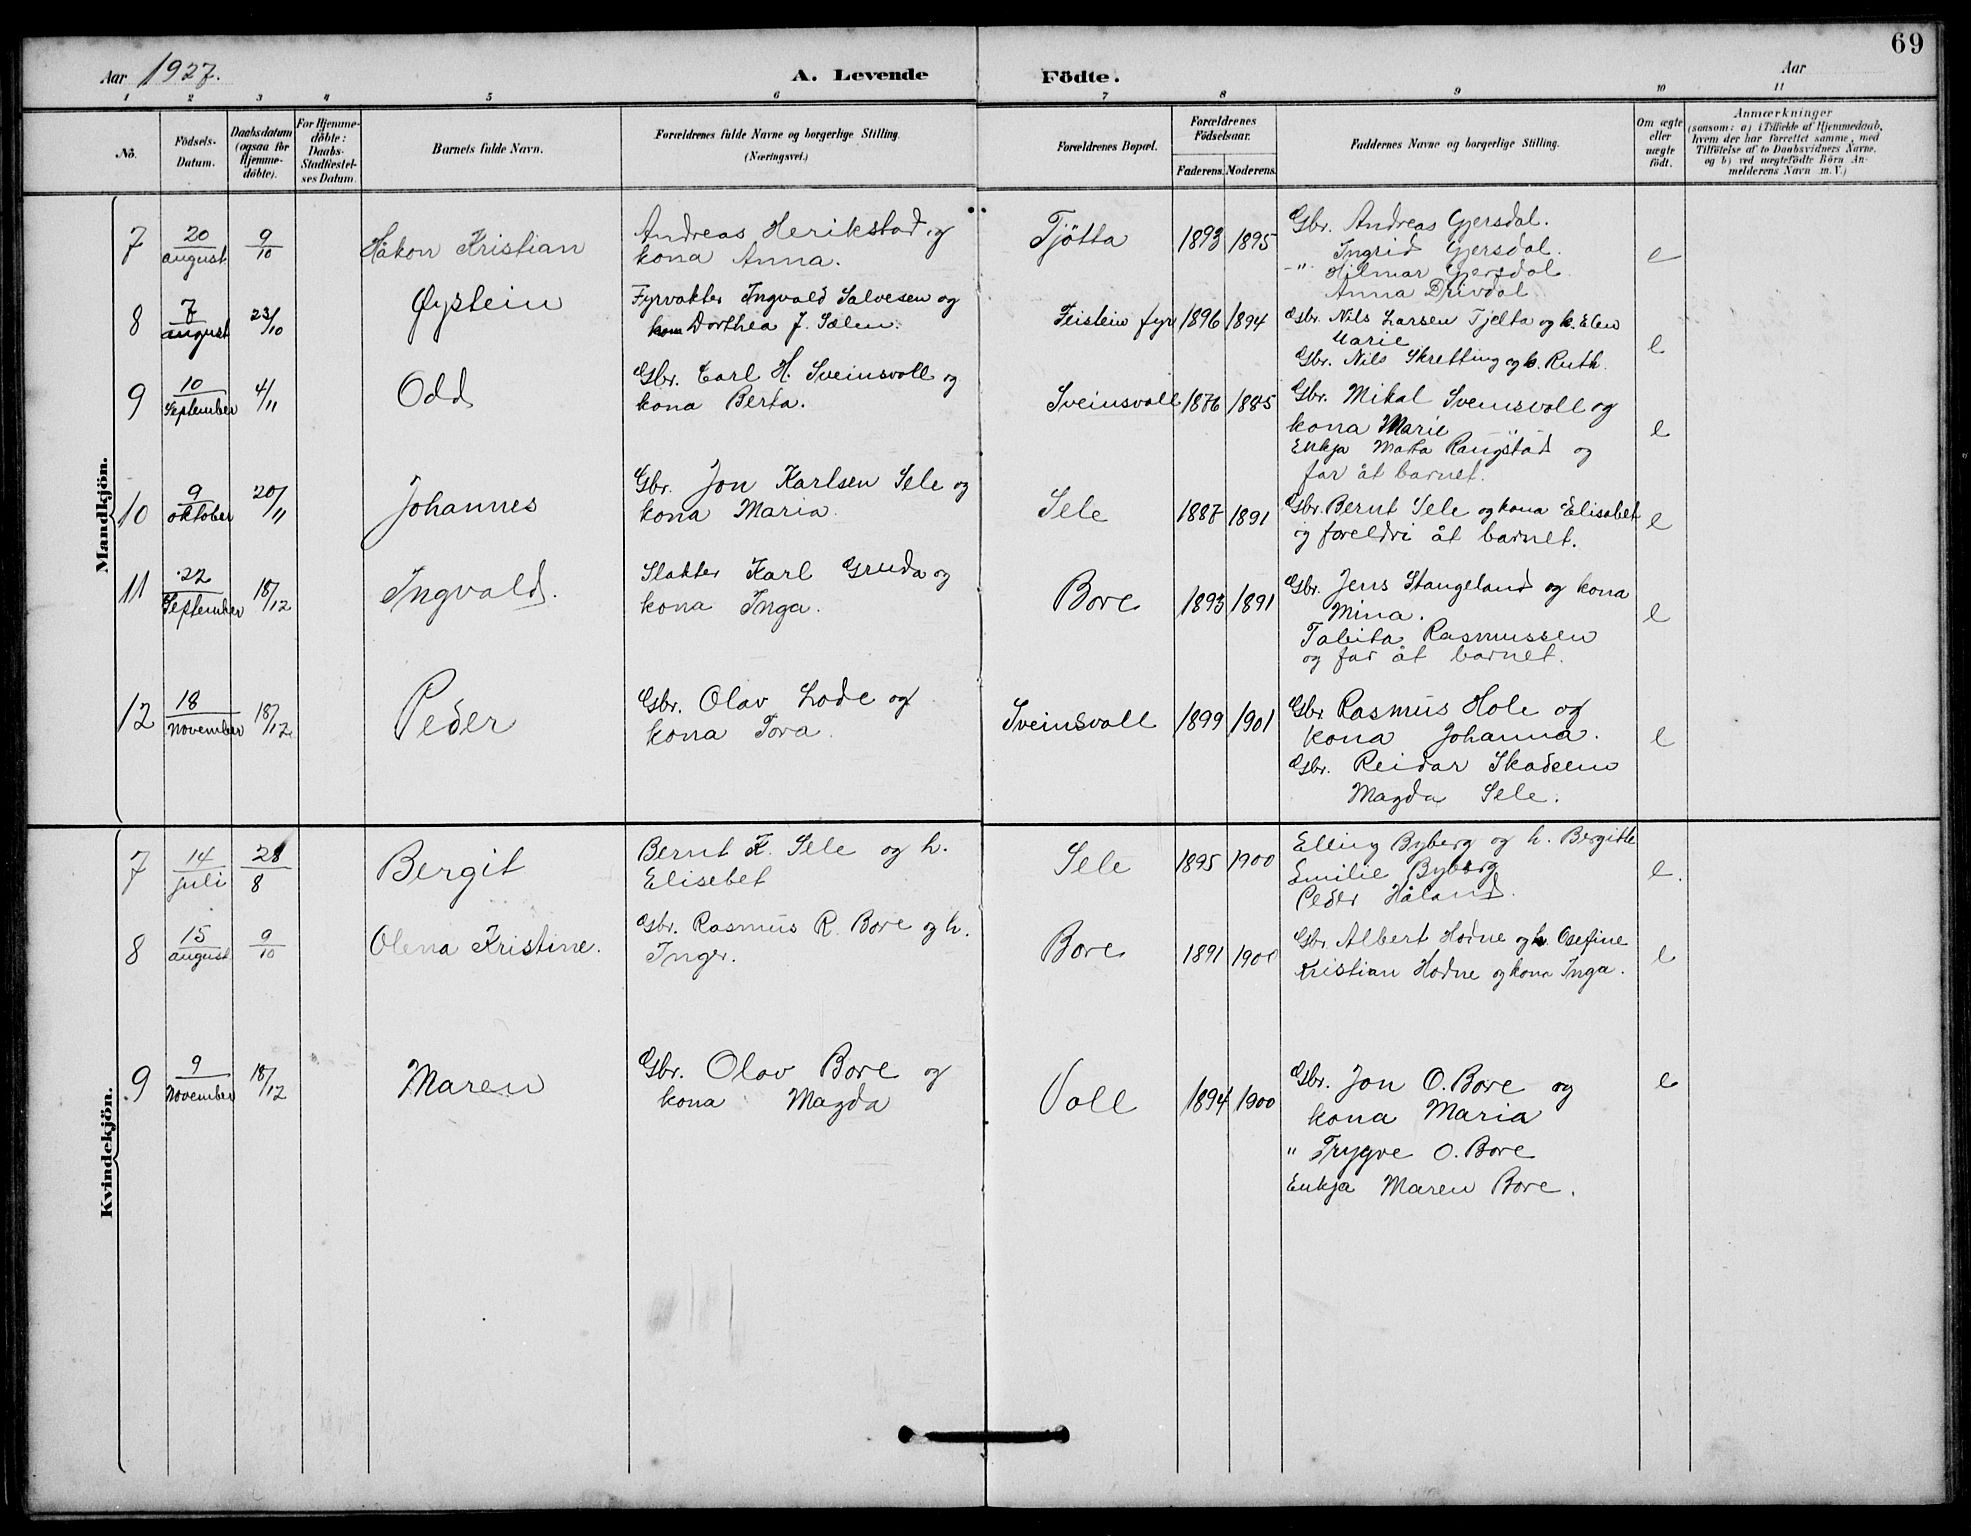 69
Aar 1927. A. Levende Födte. Aar
1 2 3 4 5 6 7 8 9 10 11
No. Födsels-Datum. Daabsdatum (ogsaa for Hjemme-döbte). For Hjemme-döbte: Daabs-Stadfæstel-ses Datum. Barnets fulde Navn. Forældrenes fulde Navne og borgerlige Stilling. (Næringsvei.) Forældrenes Bopæl. Forældrenes Födselsaar. Faderens. Moderens. Faddernes Navne og borgerlige Stilling. Om ægte eller uægte födt. Anmærkninger (saasom: a) i Tilfælde af Hjemmedaab, hvem der har forrettet samme, med Tilföielse af to Daabsvidners Navne, og b) ved uægtefödte Börn An-melderens Navn m. V.)
Mandkjön.
7 20/august 9/10 Håkon Kristian Andreas Herikstad og
kona Anna.
Tjøtta 1893 1895 Gbr. Andreas Gjersdal.
Ingrid Gjersdal.
-"- Hilmar Gjersdal.
Anna Drivdal
e
8 7/august 23/10 Øystein Fyrvakter Ingvald Salvesen og
kona Dorthea J. Sælen.
Feistein fyr 1896 1894 Gbr. Nils Larsen Tjelta og k. Elen
Marie
Gbr. Nils Skretting og k. Ruth.
e
9 10/September 4/11 Odd Gbr. Carl H. Sveinsvoll og
kona Berta.
Sveinsvoll 1876 1885 Gbr. Mikal Sveinsvoll og
kona Marie
Enkja Marta Raugstad og
far åt barnet.
e
10 9/oktober 20/11 Johannes Gbr. Jon Karlsen Sele og
kona Maria.
Sele 1887 1891 Gbr. Bernt Sele og kona Elisabet
og foreldri åt barnet.
e
11 22/September 18/12 Ingvald. Slakter Karl Gruda og
kona Inga.
Bore 1893 1891 Gbr. Jens Stangeland og kona
Mina.
Tabita Rasmussen
og far åt barnet.
e
12 18/November 18/12 Peder Gbr. Olav Lode og
kona Tora.
Sveinsvoll 1899 1901 Gbr. Rasmus Hole og
kona Johanna.
Gbr. Reidar Skadsem
Magda Sele.
e
Kvindekjön.
7 14/juli 28/8 Bergit Bernt K. Sele og h.
Elisebet
Sele 1895 1900 Elling Byberg og h. Bergitte
Emilie Byberg
Peder Håland.
e.
8 15/august 9/10 Olena Kristine. Gbr. Rasmus R. Bore og h.
Inger.
Bore 1891 1900 Gbr. Albert Hodne og h. Osefine
Kristian Hodne og kona Inga.
e
9 9/November 18/12 Maren Gbr. Olav Bore og
kona Magda
Voll 1894 1900 Gbr. Jon O. Bore og
kona Maria
" Trygve O. Bore
Enkja Maren Bore.
e